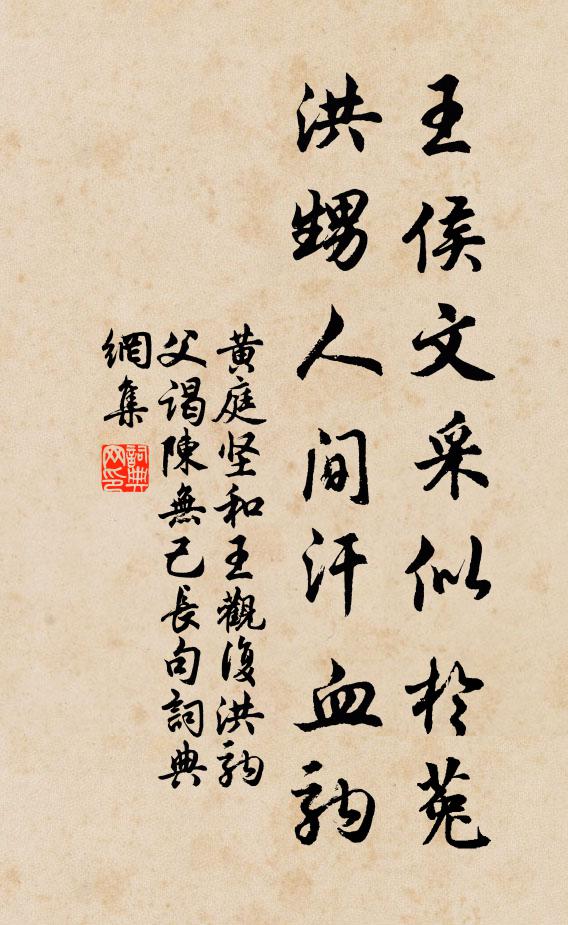 王侯文采似於菟
洪甥人間汗血駒
黃庭坚和王觀復洪駒
父謁陳無己長句詞典
網集
詞典網印